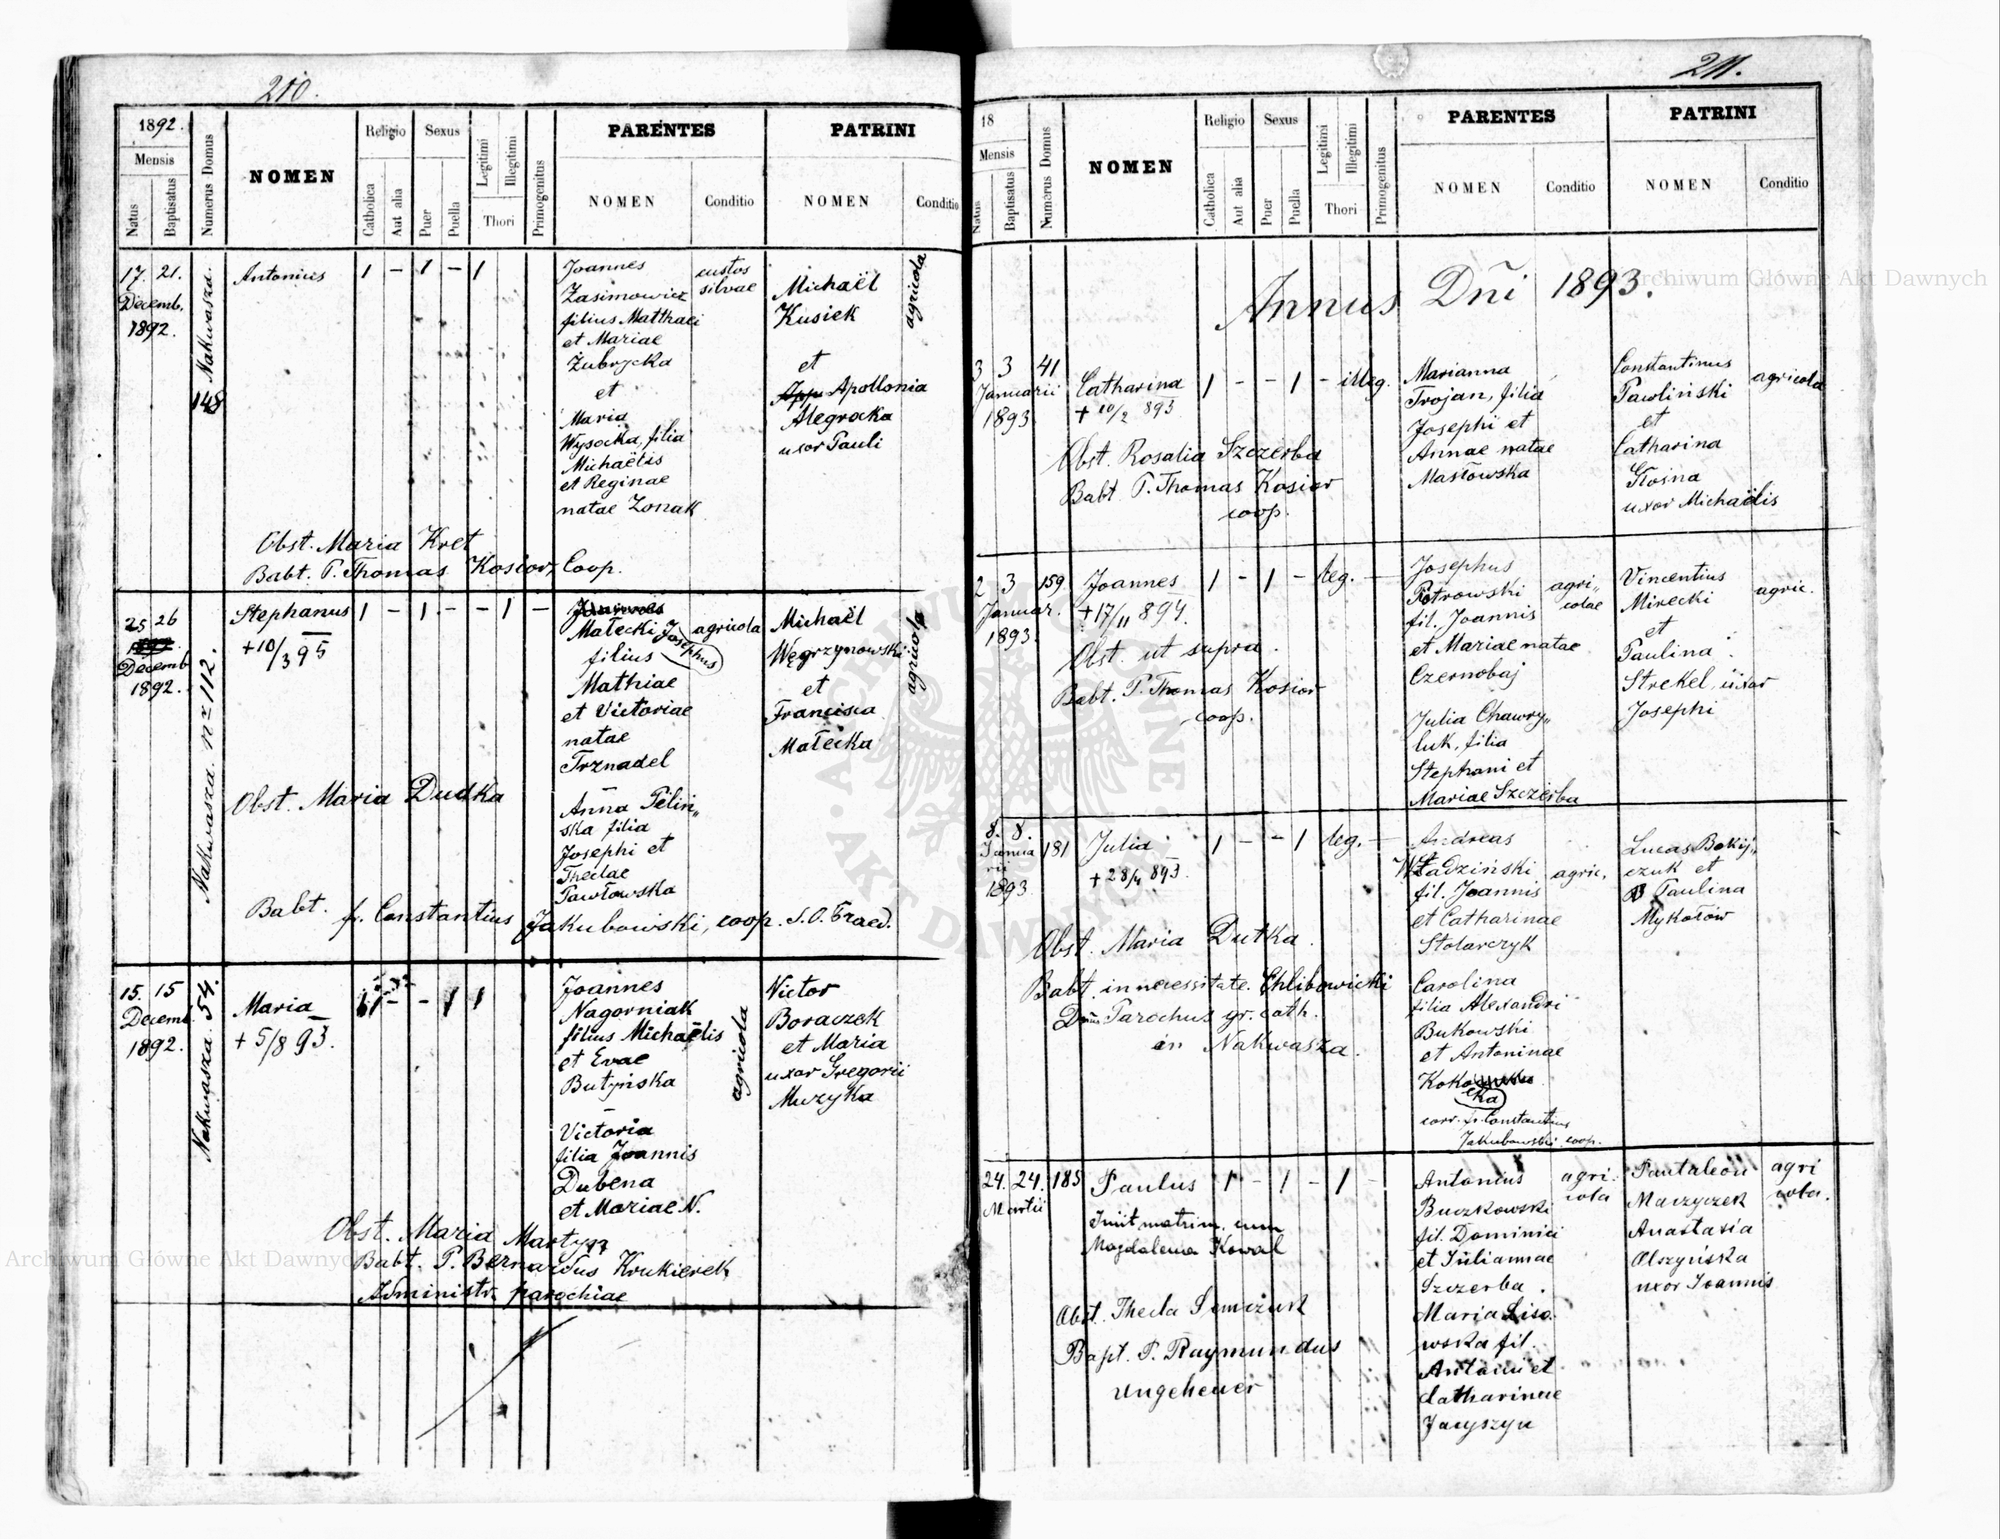 210.
1892.
Mensis
Natus
Baptisatus
Numerus Domus
NOMEN
Religio
Catholica
Aut alia
Sexus
Puer
Puella
Legitimi
Illegitimi
Thori
Primogenitus
PARENTES
NOMEN
Conditio
PATRINI
NOMEN
Conditio
17. 21.
Decemb.
1892.
Nakwasza.
148
Antonius
1 - 1 - 1
Joannes
Zasimowicz
filius Matthaei
et Mariae
Zubrycka
et
Maria
Wysocka, filia
Michaëlis
et Reginae
natae Zonak
custos
silvae
Michaël
Kusiek
et
Apollonia
Alegrocka
uxor Pauli
agricola
Obst. Maria Kret
Babt. P. Thomas Kosior, Coop.
25 26
Decemb
1892.
Nakwasza. nr 112.
Stephanus
+10/3 95
1 - 1 - - 1 -
Małecki Josephus
filius
Mathiae
et Victoriae
natae
Trznadel
Anna Pelin„
ska filia
Josephi et
Theclae
Pawłowska
agricola
Michaël
Węgrzynowski
et
Francisca
Małecka
agricola
Obst. Maria Dudka
Babt. fr. Constantius Jakubowski, coop. S. O. Praed.
15. 15
Decemb.
1892.
Nakwasza. 54.
Maria
+ 5/8 93.
1 - - 1 1
Joannes
Nagorniak
filius Michaëlis
et Evae
Butyńska
Victoria
filia Joannis
Dubena
et Mariae N.
agricola
Victor
Boraczek
et Maria
uxor Gregorii
Muzyka
Obst. Maria Martyn
Babt. P. Bernardus Krukierek
Administr. parochiae
211.
18
Mensis
Natus
Baptisatus
Numerus Domus
NOMEN
Religio
Catholica
Aut alia
Sexus
Puer
Puella
Legitimi
Illegitimi
Thori
Primogenitus
PARENTES
NOMEN
Conditio
PATRINI
NOMEN
Conditio
Annus Dñi 1893.
3 3 41
Januarii
1893.
Catharina
+ 10/2 893
1 - - 1 - illeg.
Marianna
Trojan, filia
Josephi et
Annae natae
Masłowska
Constantinus
Pawliński
et
Catharina
Kosna
uxor Michaëlis
agricola
Obst. Rosalia Szczerba
Babt P. Thomas Kosior
coop.
2 3 159
Januar.
1893.
Joannes
+17/11 894.
1 - 1 - leg. -
Josephus
Petrowski
fil. Joannis
et Mariae natae
Czernobaj
Julia Chawry„
luk, filia
Stephani et
Mariae Szczerba
agri„
colae
Vincentius
Mirecki
et
Paulina
Strekel, uxor
Josephi
agric.
Obst. ut supra.
Babt. P. Thomas Kosior
coop.
8. 8.
Janua
rii
1893.
181
Julia
+ 28/4 893.
1 - - 1 leg. -
Andreas
Władziński
fil. Joannis
et Catharinae
Stolarczyk
Carolina
filia Alexandri
Bukowski
et Antoninae
cka
corr. fr. Constantius
Jakubowski coop.
agric.
Lucas Bokij„
czuk et
Paulina
Mykołów
Obst. Maria Dutka.
Babt. in necessitate. Chlibowicki
Parochus gr. cath.
in Nakwasza.
24. 24. 185
Martii
Paulus
Iniit matrim. cum
Magdalena Kowal
1 - 1 - 1 -
Antonius
Buczkowski
fil. Dominici
et Juliannae
Szczerba.
Maria Liso.
wska fil.
Antonii et
Catharinae
Jacyszyn
agri.
cola
Pantaleon
Maczyczek
Anastasia
Olszyńska
uxor Joannis
agri
cola.
Obst. Thecla Semczuk
Bapt. P. Raymundus
Ungeheuer
Archiwum Główne Akt Dawnych
Archiwum Główne Akt Dawnych
ARCHIWUM GŁÓWNE · AKT DAWNYCH ·